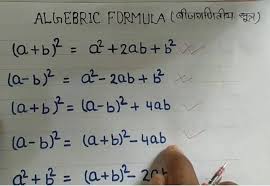 ALGEBRIC FORMULA (बीजगणितीय सूत्र)
(a+b)² = a²+2ab+b²
(a-b)² = a²-2ab+b²
(a+b)² = (a-b)²+4ab
(a-b)² = (a+b)²-4ab
a²+b² = (a+b)²-2